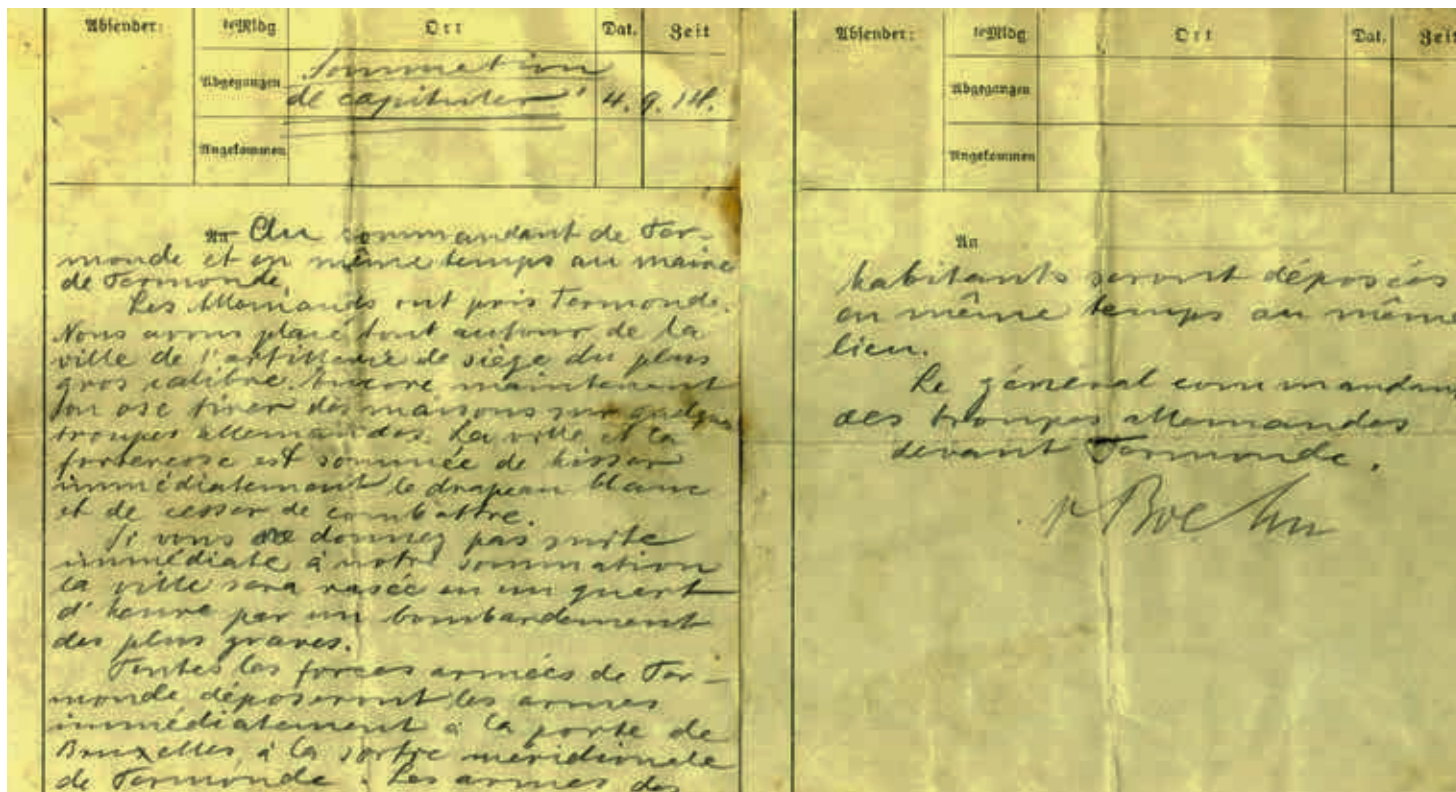 Absender:
teMldg
Ort
Dat.
Zeit
Abgegangen
Sommation
de capituler
4. 9. 14.
Angekommen
An Au commandant de Ter-
monde et en même temps au maire
de Termonde.
Les Allemands ont pris Termonde.
Nous avons placé tout autour de la
ville de l'artillerie de siège du plus
gros calibre. Encore maintenant
on ose tirer des maisons sur quelques
troupes allemandes. La ville et la
forteresse est sommée de hisser
immédiatement le drapeau blanc
et de cesser de combattre.
Si vous ne donnez pas suite
immédiate à notre sommation
la ville sera rasée en un quart
d'heure par un bombardement
des plus graves.
Toutes les forces armées de Ter-
monde déposeront les armes
immédiatement à la porte de
Bruxelles, à la sortie méridionale
de Termonde. Les armes des
Absender:
teMldg
Ort
Dat.
Zeit
Abgegangen
Angekommen
An
habitants seront déposées
en même temps au même
lieu.
Le général commandant
des troupes allemandes
devant Termonde.
v Boehn